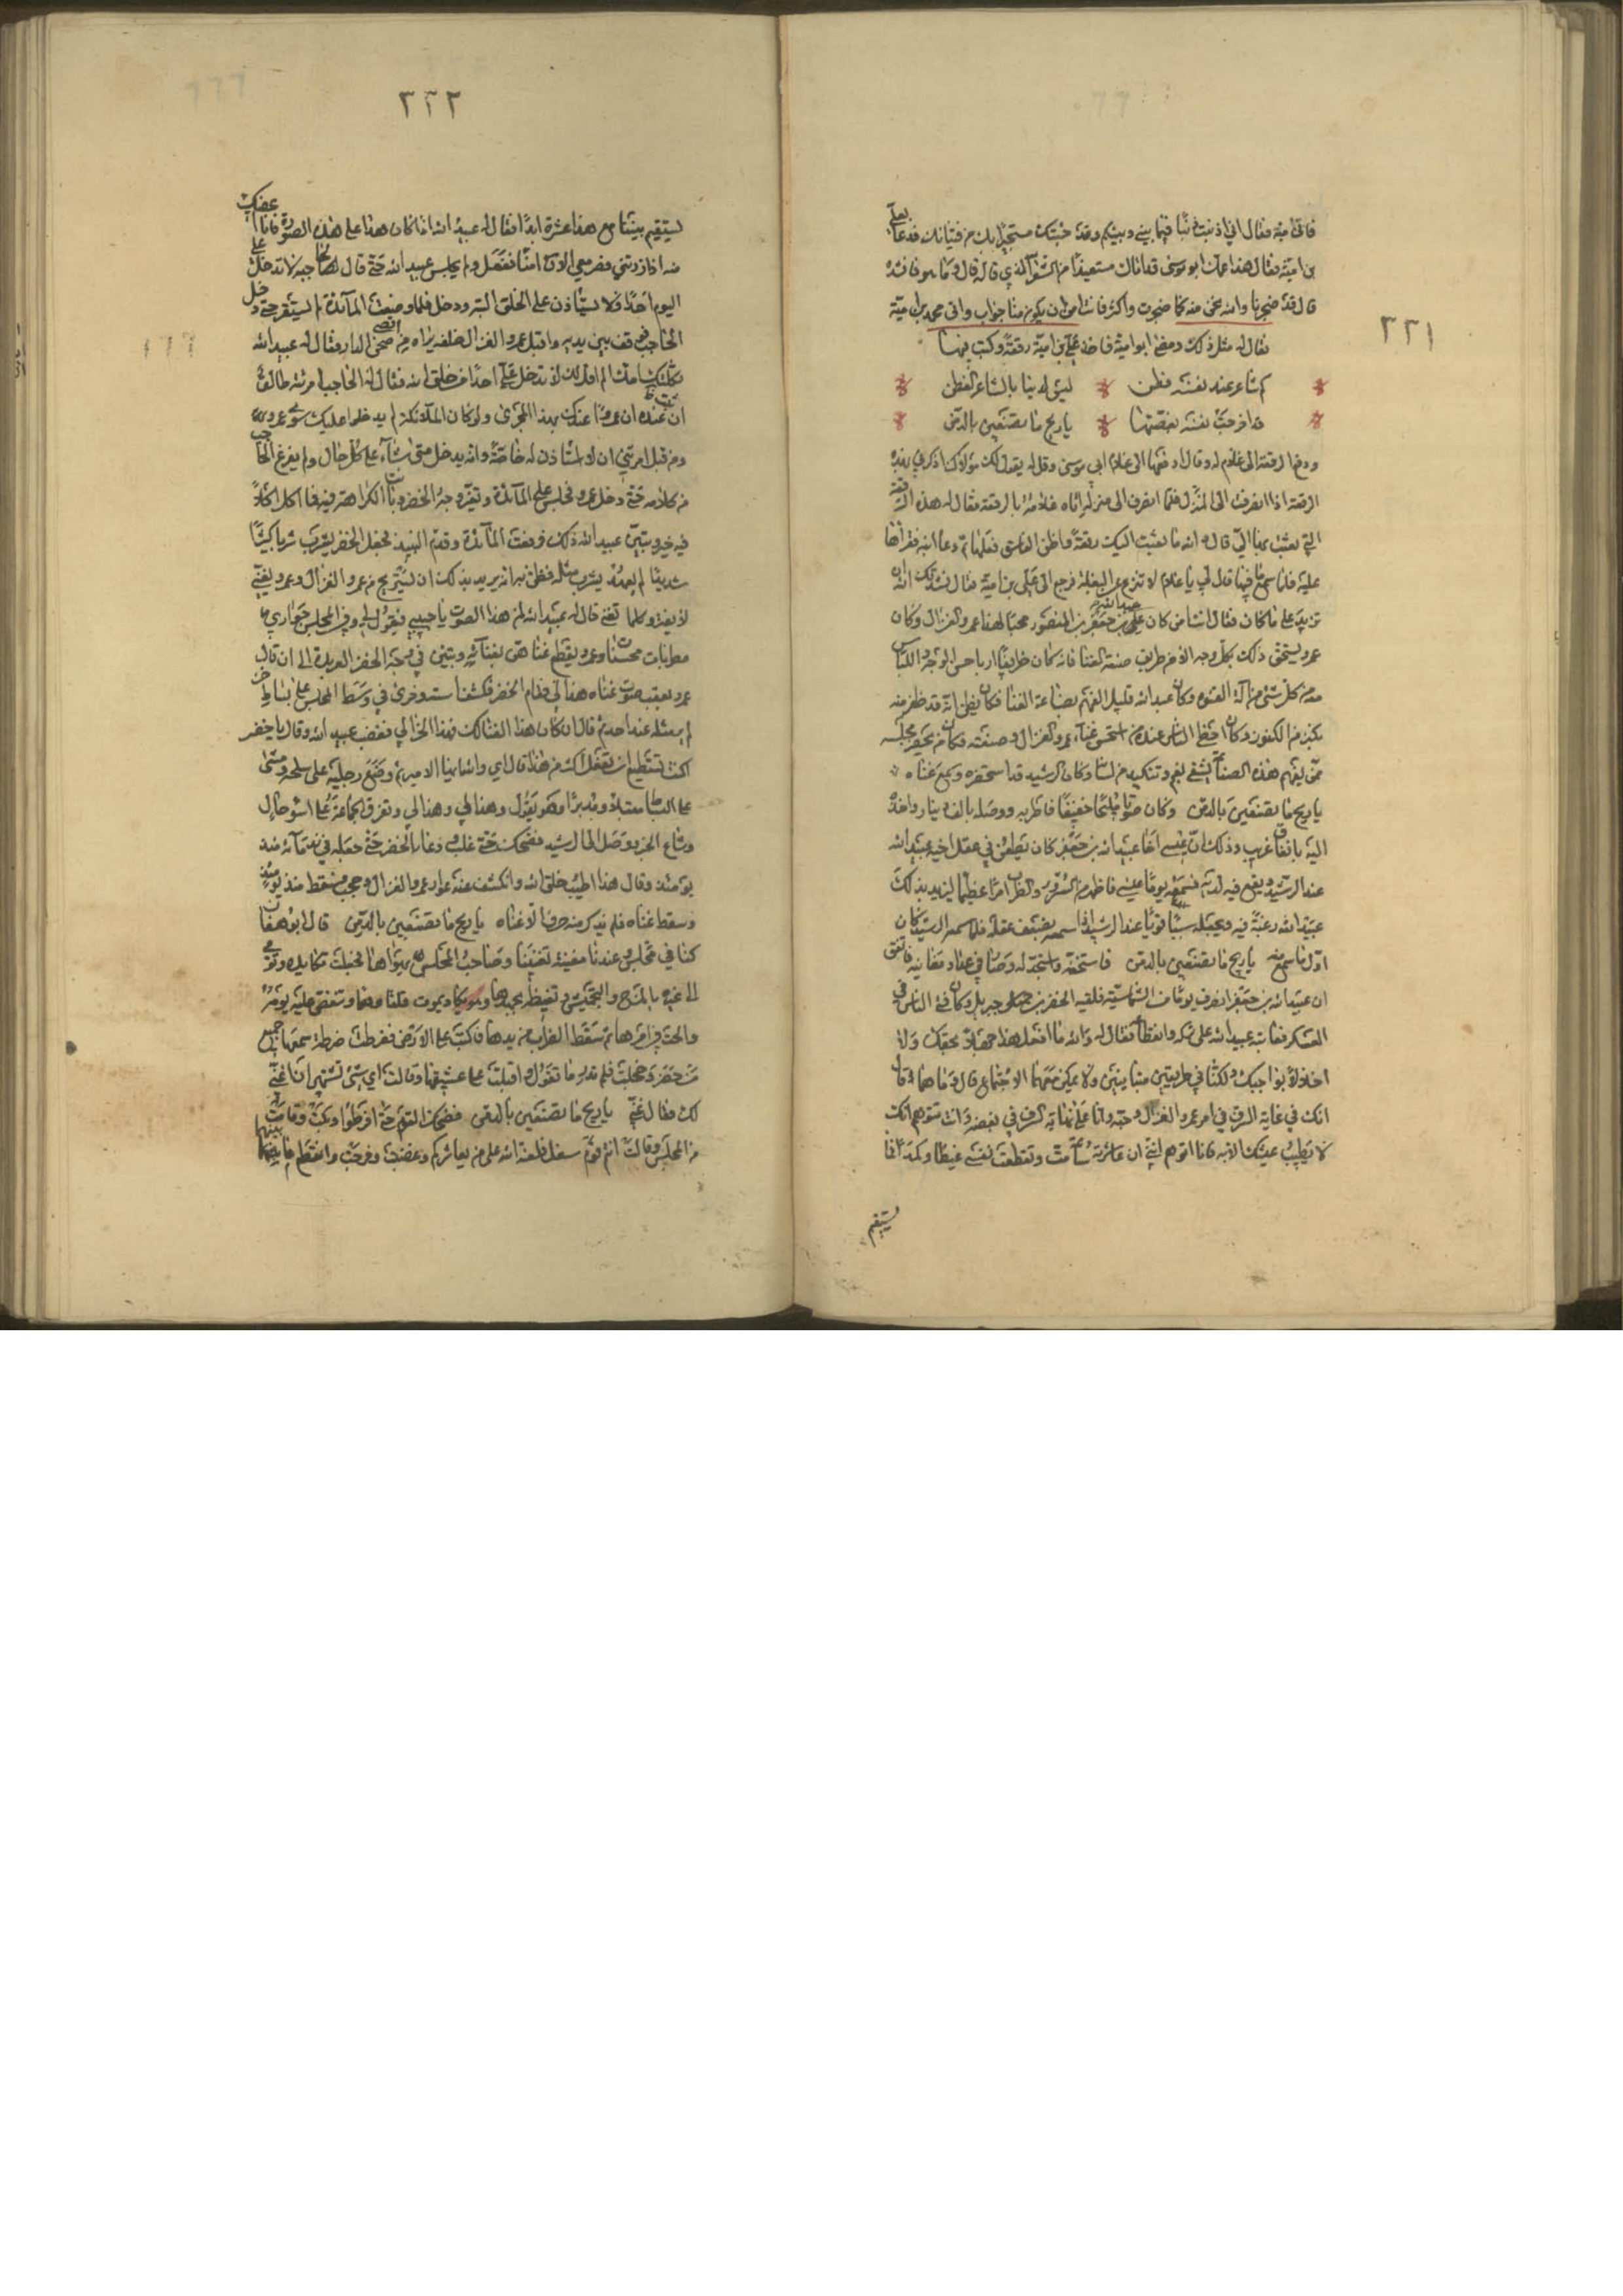 ٢٢١
فاتى امية فقال اني اذنبت ذنبا فيما بيني وبينكم وقد جئتك مستجيرا بك من فتيانك فدعا بعلي
بن امية فقال هذا عمك ابو موسى قد اتاك مستعيذا من الشعر الذي قال قال وما هو فانشده
قال قد ضجرنا والله نحن منه كما ضجرت واكثر فانت امن ان يكون منا جواب واتى محمد بن امية
فقال له مثل ذلك ومضى ابو امية فاخذ علي بن امية رقعة وكتب فيها
كم شاعر عند نفسه فطن ليس لدينا بالشاعر الفطن
قد اخرجت نفسه بغصتها يا ريح ما تصنعين بالدمن
ودفع الرقعة الى غلام له وقال ادفعها الى غلام ابي موسى وقل له يقول لك مولاك اذكرني بهذه
الرقعة اذا انصرفت الى المنزل فلما انصرف الى منزله اتاه غلامه بالرقعة فقال له هذه الرقعة
التي بعثت بها الي قال والله ما بعثت اليك رقعة واظن الفاسق فعلها ثم دعا ابنه فقراها
عليه فلما سمع ما فيها قال لي يا غلام لا تنزع عن البغلة فرجع الى علي بن امية فقال نشدتك الله
تزيد على ما كان فقال انت امن كان علي بن جعفر بن المنصور محبا لهذا عمرو الغزال وكان
عمرو يستحق ذلك بكل وجه الا من طريق صنعة الغنا فانه كان ظريفا اديبا حسن الوجه واللباس
معه من كل شي من آلة الفتوه وكان عبيد الله قليل الفهم بصناعة الغنا فكان يظن انه قد ظفر منه
بكنز من الكنوز وكان احظى الناس عنده من استحسن غناء عمرو الغزال وصنعته فكان من يحضر مجلسه
ممن يفهم هذه الصناعة
يا ريح ما تصنعين بالدمن وكان صوتا مليحا خفيفا فاطربه ووصله بالف دينار
اليه باتفاق غريب وذلك ان عيسى اخا عبيد الله بن جعفر كان يطعن في عقل اخيه عبيد الله
عند الرشيد ويقع فيه لديه
عبيد الله رغبة فيه ويجعله سببا قويا عند الرشيد
اول ما سمع منه يا ريح ما تصنعين بالدمن
ان عبيد الله بن جعفر انصرف يوما من الشماسية فلقيه الخضر بن جبريل وكان في الناس في
العسكر فعاتبه عبيد الله على تركه وانقطاعه فقال له والله ما افعل هذا جهلا بحقك ولا
اخلالا بواجبك ولكنا في طريقين متباينين ولا يمكن معهما الاجتماع قال وما هما قال
انك في غاية السرف في امر عمرو الغزال ومحبته وانا على نهاية السرف في بغضه وانت تتوهم انك
لا يطيب عيشك الا به فانا اتوهم انني ان عاشرته ساعة مت وتقطعت نفسي غيظا وكمدا فما
يستقيم
٢٢٢
يستقيم بيننا مع هذا عشرة ابدا فقال له عبيد الله اذا كان هذا على هذه الصورة فانا اعفيك
منه اذا زرتني فصر معي الآن امنا ففعل ولم يجلس عبيد الله حتى قال لحاجبه لا تدخل علي
اليوم احدا ولا تستأذن علي لخلق البته ودخل فلما وضعت المآئدة لم يستقر حتى دخل
الحاجب فوقف بين يديه واقبل عمرو الغزال خلفه يراه من صحن الدار فقال له عبيد الله
ثكلتك امك الم اقل لك لا تدخل علي احدا من خلق الله فقال له الحاجب امرئته طالق
ان عنده ان عمروا عندك بهذا المجرى ولو كان الملائكة لم يدخلوا عليك سوى عمرو
ومن قبل امرتني ان لا استأذن له خاصة وانه يدخل متى شاء على كل حال ولم يفرغ الحاجب
من كلامه حتى دخل عمرو فجلس على المآئدة وتغير وجه الخضر وبانت الكراهة فيه فما اكل اكلا
فيه خير وتبين عبيد الله ذلك ورفعت المآئدة وقدم النبيذ فجعل الخضر يشرب شربا كثيرا
شديدا لم يعهده يشرب مثله فظن به انه يريد بذلك ان يستريح من عمرو الغزال وعمرو يغني
لا يفتر وكلما تغنى قال له عبيد الله لمن هذا الصوت يا حبيبي فيقول لي وفي المجلس جواري
مطربات محسنات وعمرو يقطع غناهن بغنائه وتبين في وجه الخضر العربدة الى ان قال
عمرو بعقب صوت غناه هذا لي فقام الخضر فكشف استه وخرى في وسط المجلس على بساط
لم ير مثله عند احد ثم قال ان كان هذا الغنا لك فهذا الخرا لي فغضب عبيد الله وقال يا خضر
اكنت تستطيع ان تفعل اكثر من هذا قال اي والله ايها الامير ثم وضع رجليه على سلحه ومشى
على البساط مقبلا ومدبرا وهو يقول وهذا لي وهذا لي وتفرق الجماعة على اسوء حال
وشاع الخبر ووصل الى الرشيد فضحك حتى غلب ودعا بالخضر حتى جعله في ندمائه منذ
يومئذ وقال هذا اطيب خلق الله وانكشف عنده عوار عمرو الغزال وحجب فسقط منذ يومئذ
وسقط غناه فلم يذكر منه حرف الا غناه يا ريح ما تصنعين بالدمن قال ابو هفان
كنا في مجلس وعندنا مغنية تغنينا وصاحب المجلس يهواها فجعلت تكايده وتومي
الى غيره بالمزح والتجميش وتغيظه بجهدها وهو يكاد يموت قلقا وهما وتنغص عليه يومه
والحت في امرها ثم سقط المضراب من يدها فاكبت على الارض ففرطت ضرطة سمعها جميع
من حضر وخجلت فلم تدر ما تقول واقبلت على عشيقها وقالت اي شي تشتهي ان اغني
لك فقال غني يا ريح ما تصنعين بالدمن فضحك القوم حتى افرطوا وبكت وقامت
من المجلس وقالت انتم قوم سفل فلعنة الله على من يعاشركم وغضبت وخرجت وانقطع ما بينهما